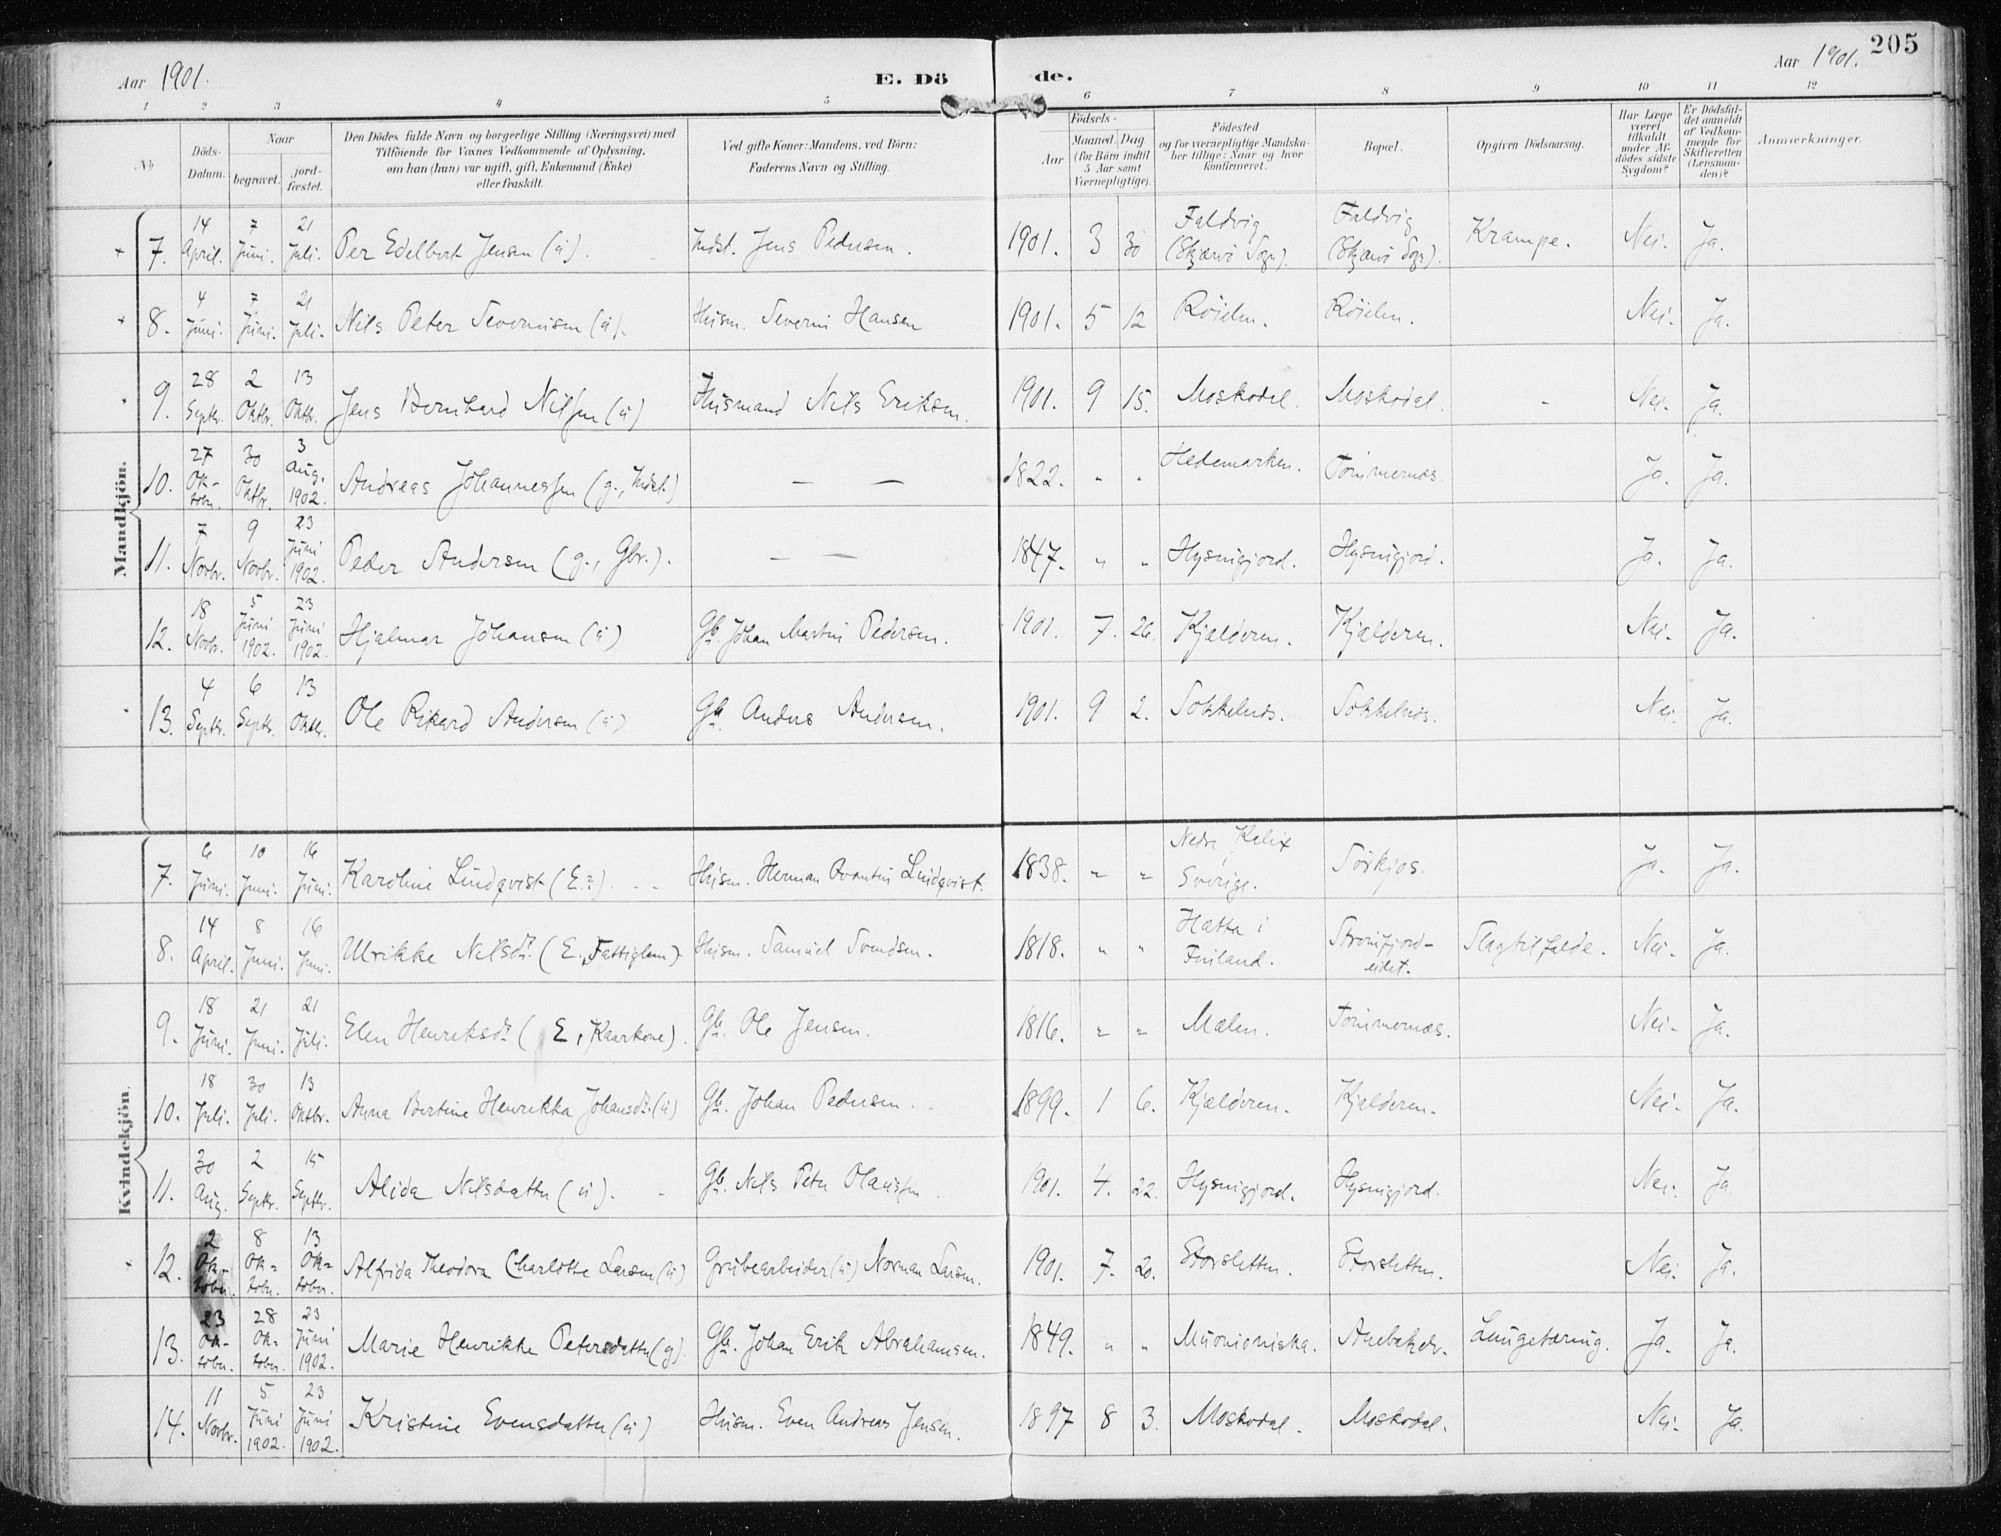 205
Aar 1901. E. Dö de. Aar 1901.
1 2 3 4 5 6 7 8 9 10 11 12
No
Döds-Datum.
Naar
begravet.
jord-fæstet.
Den Dödes fulde Navn og borgerlige Stilling (Næringsvei) med
Tilföiende for Voxnes Vedkommende af Oplysning,
om han (hun) var ugift, gift, Enkemand (Enke)
eller fraskilt.
Ved gifte Koner: Mandens, ved Börn:
Faderens Navn og Stilling.
Födsels-
Aar
Maaned. Dag
(for Börn indtil
5 Aar samt
Værnepligtige).
Födested
og for værnepligtige Mandska-
ber tillige: Naar og hvor
konfirmeret.
Bopæl.
Opgiven Dödsaarsag.
Har Læge
været
tilkaldt
under Af-
dödes sidste
Sygdom?
Er Dödsfal-
det anmeldt
af Vedkom-
mende for
Skifteretten
(Lensman-
den)?
Anmærkninger.
Mandkjön.
7. 14 April. 7 Juni. 21 Juli. Per Edelbert Jensen (ú). Indst. Jens Pedersen. 1901. 3 30 Faldvig (Skjærvö Sogn). Faldvig (Skjærvö Sogn). Krampe. Nei. Ja.
8. 4 Juni. 7 Juni. 21 Juli. Nils Peter Severinsen (ú). Húsm. Severin Hansen 1901. 5 12 Röielen. Röielen. Nei. Ja.
9. 28 Septbr. 2 Oktbr. 13 Oktbr. Jens Bernhard Nilsen (ú) Húsmand Nils Eriksen. 1901. 9 15. Moskodal. Moskodal. - Nei. Ja.
10. 27 Oktober. 30 Oktbr. 3 Aug. 1902. Andreas Johannessen (g., Indst.) — — 1822. " " Hedemarken. Tömmernæs. Ja. Ja.
11. 7 Novbr. 9 Novbr. 23 Juni 1902. Peder Andersen (g., Gbr.). — — 1847. " " Hysingjord. Hysingjord. Ja. Ja.
12. 18 Novbr. 5 Juni 1902. 23 Juni 1902. Hjalmar Johansen (ú) Gb. Johan Martin Pedersen. 1901. 7. 26. Kjælderen. Kjælderen. Nei. Ja.
13. 4 Septbr. 6 Septbr. 13 Oktbr. Ole Rikard Andersen (ú) Gb. Anders Andersen. 1901. 9 2. Sokkelnæs. Sokkelnæs. Nei. Ja.
Kvindekjön.
7. 6 Juni. 10 Juni. 16 Juni. Karoline Lindqvist (E.?). Húsm. Herman Lindqvist. 1838. " " Nedre Kalix i Sverige. Sörkjos. Ja. Ja.
8. 14 April. 8 Juni. 16 Juni. Ulrikke Nilsdr. (E., Fattiglem) Húsm. Samuel Svendsen. 1818. " " Hætta i Finland. Stromfjord-eidet. Slagtilfælde. Nei. Ja.
9. 18 Juni. 21 Juni. 21 Juli. Elen Henriksdr. (E, Kaarkone). Gb. Ole Jensen. 1816. " " Mælen. Tömmernæs. Nei. Ja.
10. 18 Juli. 30 Juli. 13 Oktbr. Anna Bertine Henrikka Johansdr. (ú) Gb. Johan Pedersen. 1899. 1 6. Kjælderen. Kjælderen. Nei. Ja.
11. 30 Aug. 2 Septbr. 15 Septbr. Alida Nilsdatter (ú). Gb. Nils Peter Olaussen. 1901. 4. 22. Hysingjord. Hysingjord. Nei. Ja.
12. 2 Oktober. 8 Oktober. 13 Oktober. Alfrida Theodora Charlotte Larsen (ú) Grúbearbeider (ú) Norman Larsen. 1901. 7. 20. Storsletten. Storsletten. Nei. Ja.
13. 23 Oktober. 28 Oktober. 23 Juni 1902. Marie Henrikke Petersdatter (g). Gb. Johan Erik Abrahamsen. 1849. " " Muonioniska. Lungetæring. Ja. Ja.
14. 11 Novbr. 5 Juni 1902. 23 Juni 1902. Kristine Evensdatter (ú) Húsm. Even Andreas Jensen. 1897 8 3. Moskodal. Moskodal. Nei. Ja.